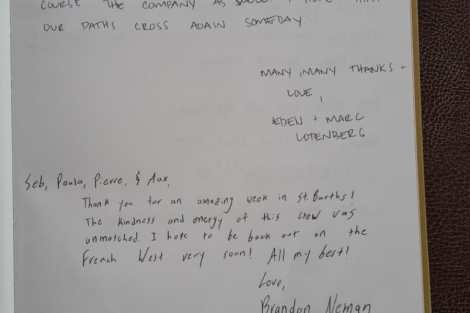 COURSE THE COMPANY AS
OUR PATHS CROSS AGAIN SOMEDAY
MANY, MANY THANKS +
LOVE,
EDEN + MARC
LOTENBERG
Seb, Paula, Pierre, & Aux,
Thank you for an amazing week in St. Barths!
The kindness and energy of this crew was
unmatched. I hope to be back out on the
French West very soon! All my best!
Love,
Brandon Neman